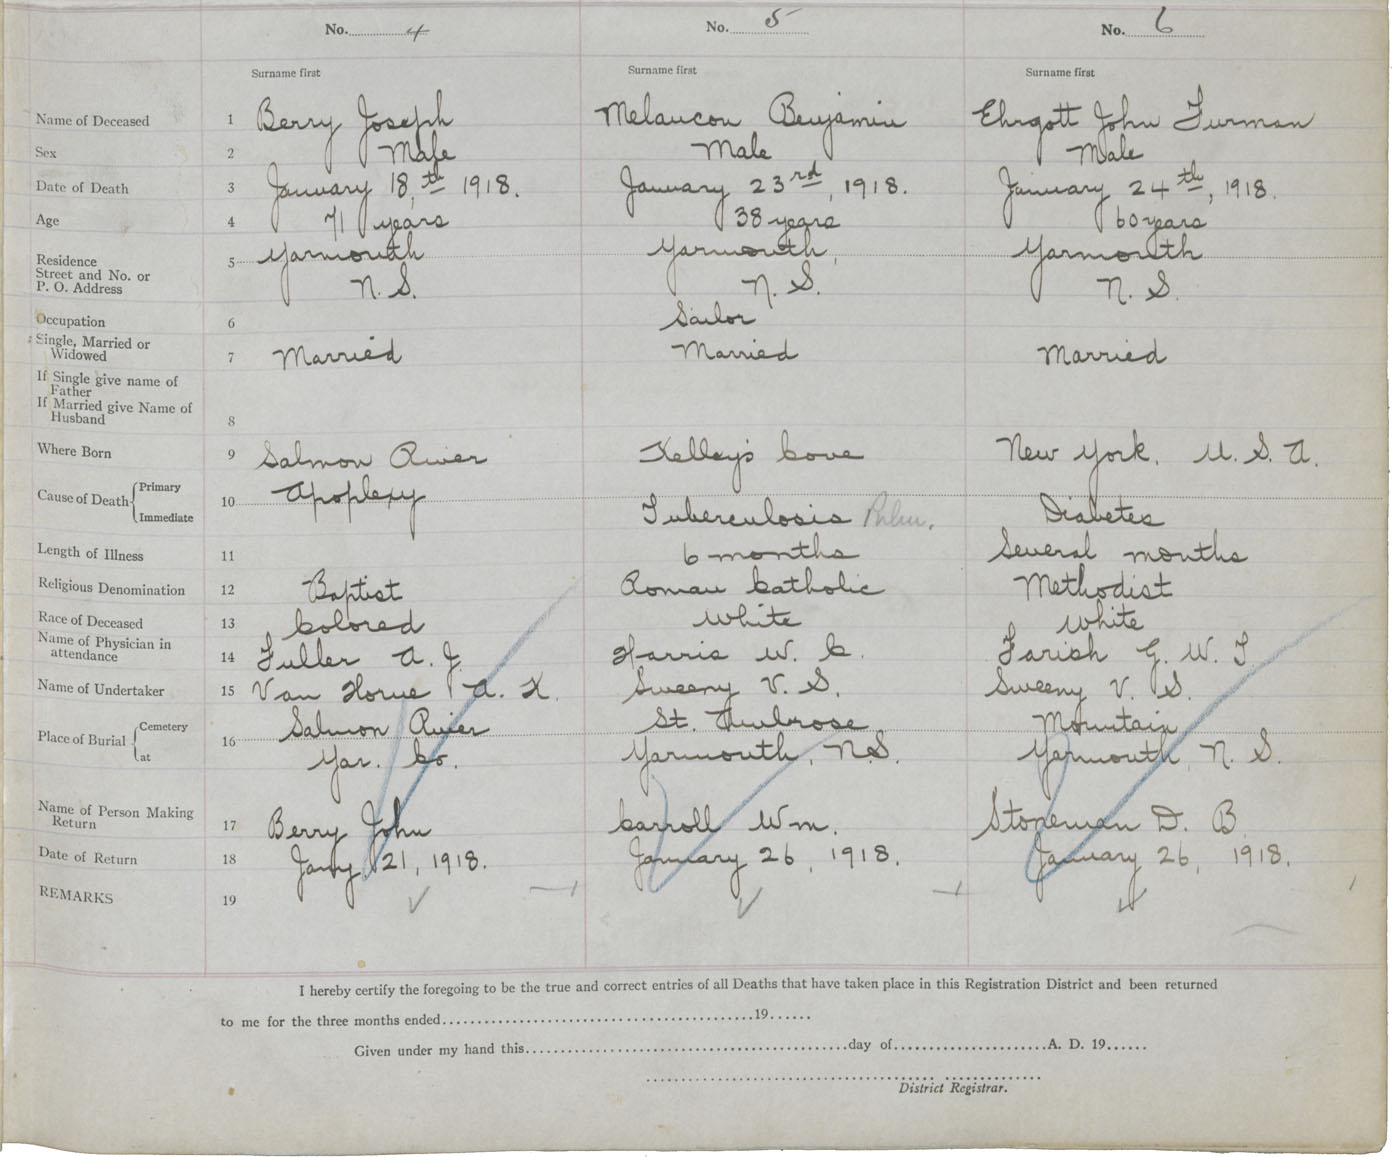 No. 4 No. 5 No. 6
Surname first Surname first Surname first
Name of Deceased 1 Berry Joseph Melancon Benjamin Ehrgott John Furman
Sex 2 Male Male Male
Date of Death 3 January 18,th 1918. January 23rd, 1918. January 24th, 1918.
Age 4 71 years 38 years 60 years
Residence 5 Yarmouth Yarmouth, Yarmouth
Street and No. or
P. O. Address N. S. N. S. N. S.
Occupation 6 Sailor
Single, Married or
Widowed 7 Married Married Married
If Single give name of
Father
If Married give Name of
Husband 8
Where Born 9 Salmon River Kelley's Cove New York, U. S. A.
Cause of Death Primary 10 Apoplexy
Immediate Tuberculosis Pulm. Diabetes
Length of Illness 11 6 months Several months
Religious Denomination 12 Baptist Roman Catholic Methodist
Race of Deceased 13 Colored White White
Name of Physician in
attendance 14 Fuller A. J. Harris W. C. Farish G. W. T
Name of Undertaker 15 Van Horne A. K. Sweeny V. S. Sweeny V. S.
Place of Burial Cemetery 16 Salmon River St. Ambrose Mountain
at Yar. Co. Yarmouth, N.S. Yarmouth, N. S.
Name of Person Making
Return 17 Berry John Carroll Wm. Stoneman D. B.
Date of Return 18 Jany 21, 1918. January 26, 1918. January 26, 1918.
REMARKS 19
I hereby certify the foregoing to be the true and correct entries of all Deaths that have taken place in this Registration District and been returned
to me for the three months ended 19
Given under my hand this day of A. D. 19
District Registrar.